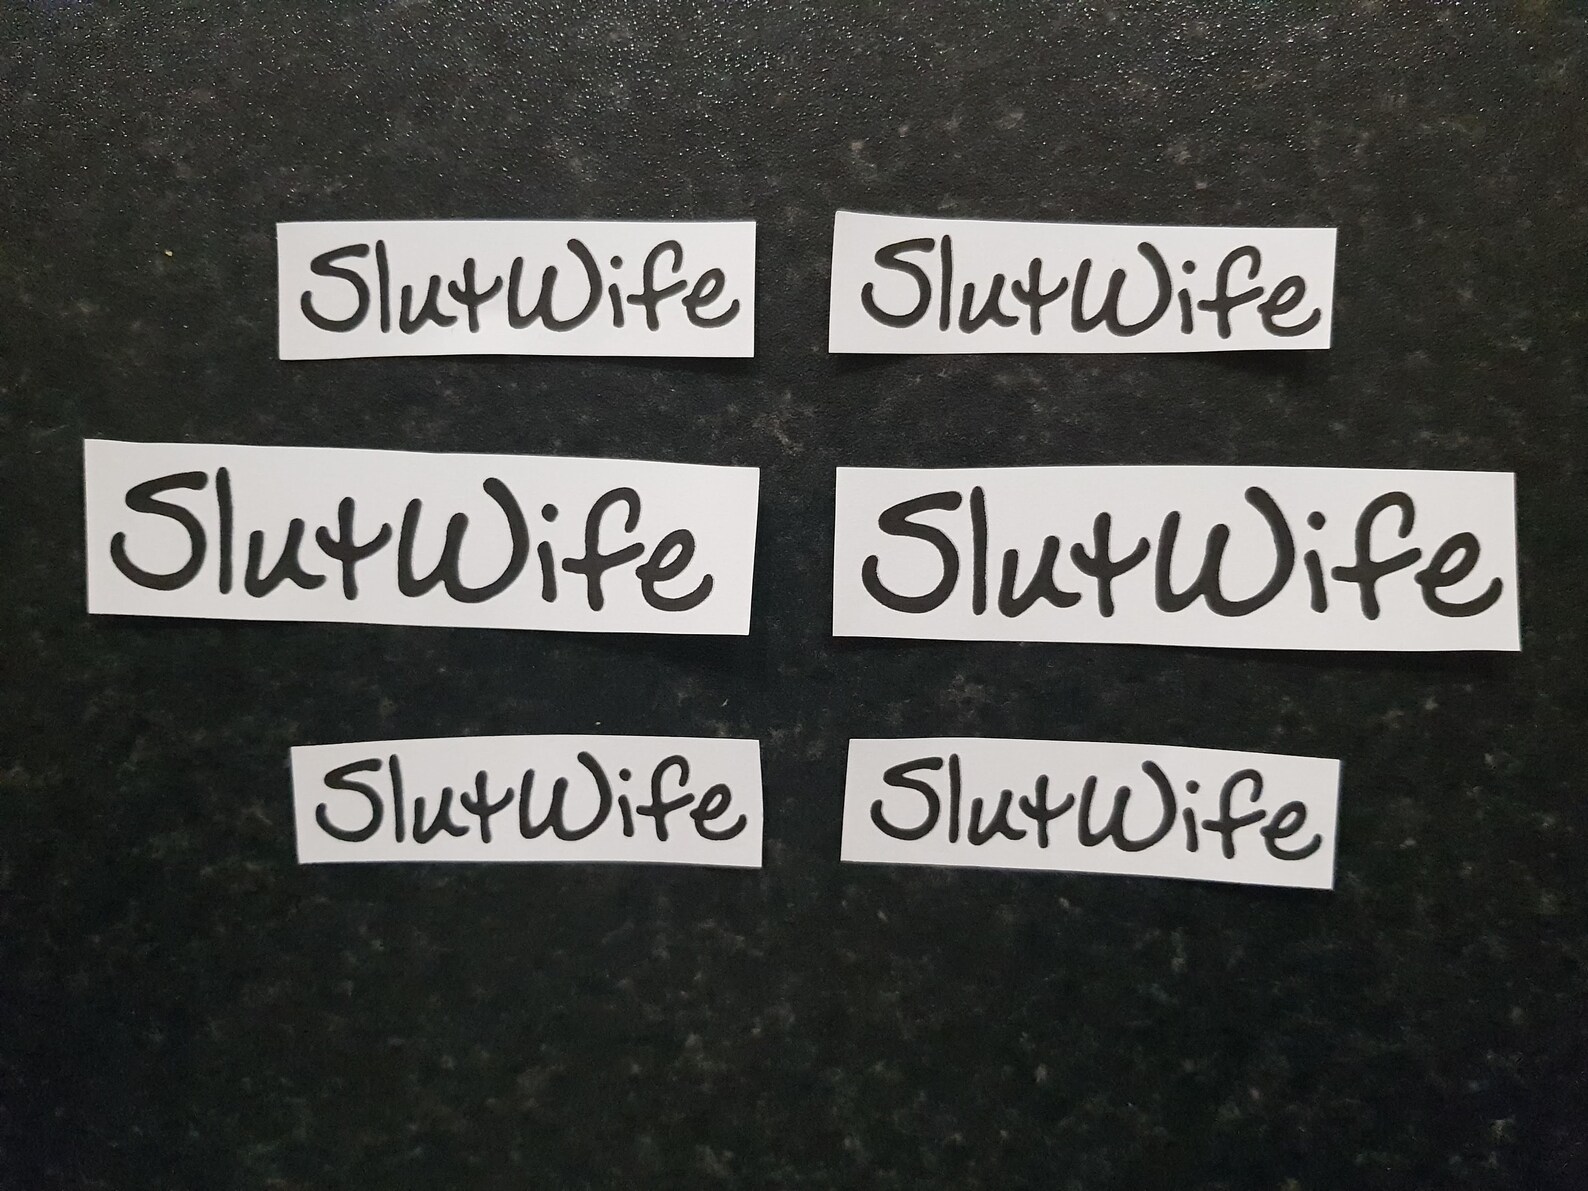 SlutWife SlutWife
SlutWife SlutWife
SlutWife SlutWife